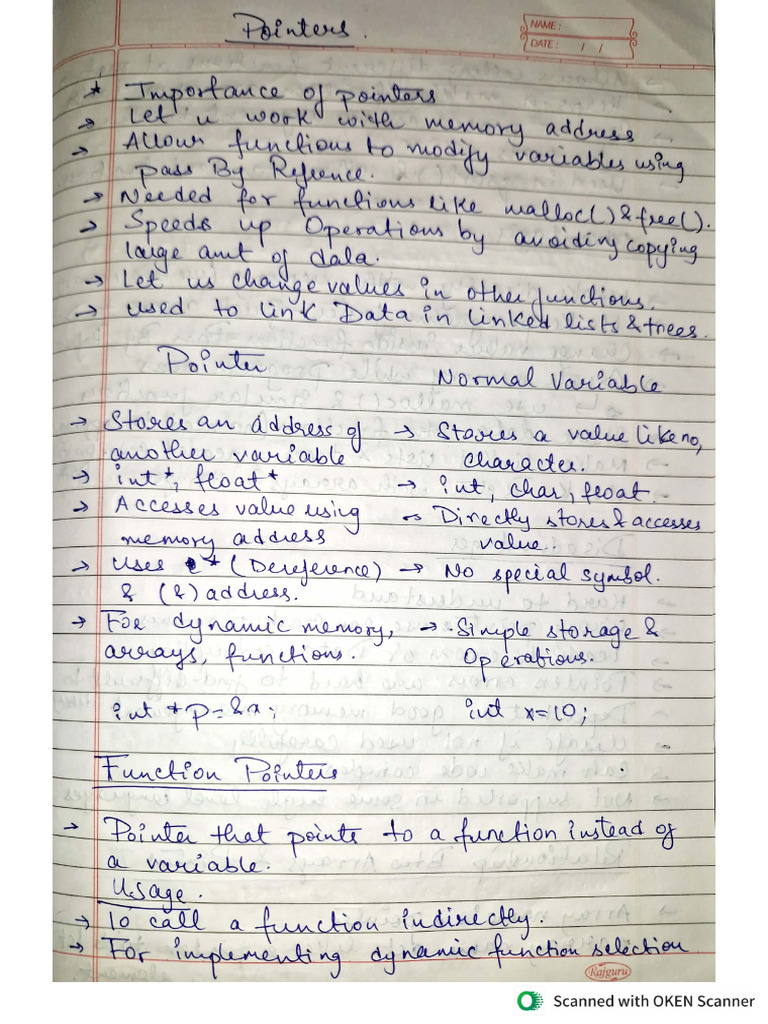 Pointers.
NAME:
DATE: / /
* Importance of pointers
→ Let u work with memory address
→ Allows functions to modify variables using
pass By Refeence.
→ Needed for functions like malloc() & free().
→ Speeds up Operations by avoiding copying
large amt of data.
→ Let us change values in other functions.
→ Used to link Data in linked lists & trees.
Pointer
Normal Variable
→ Stores an address of → Stores a value like no,
another variable character.
→ int*, float* → int, char, float.
→ Accesses value using → Directly stores & accesses
memory address value.
→ Uses * (Dereference) → No special symbol.
& (&) address.
→ For dynamic memory, → Simple storage &
arrays, functions. Operations.
int *p = &a; int x=10;
Function Pointers
→ Pointer that points to a function instead of
a variable.
Usage.
→ To call a function indirectly.
→ For implementing dynamic function selection
Rajguru
Scanned with OKEN Scanner